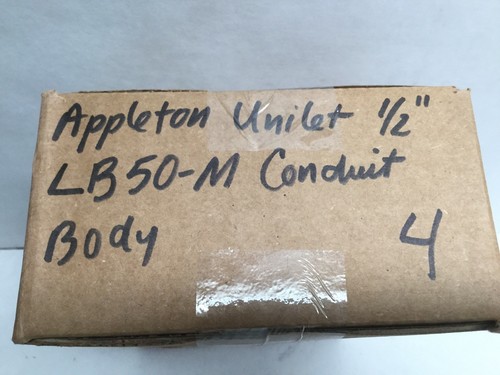 Appleton Unilet 1/2"
LB50-M Conduit
Body 4